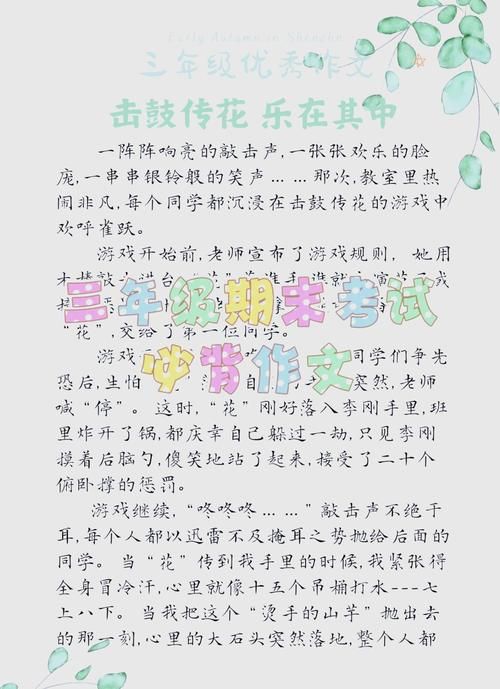 Early Autumn in
三年级优秀作文
击鼓传花 乐在其中
一阵阵响亮的敲击声,一张张欢乐的脸
庞,一串串银铃般的笑声……那次,教室里热
闹非凡,每个同学都沉浸在击鼓传花的游戏中
欢呼雀跃。
游戏开始前,老师宣布了游戏规则, 她用
三年级期末考试
“花”,交给了第一位同学。
游戏 同学们争先
必背作文
恐后,生怕 突然,老师
喊“停”。 这时,“花”刚好落入李刚手里,班
里炸开了锅,都庆幸自己躲过一劫,只见李刚
摸着后脑勺,傻笑地站了起来,接受了二十个
俯卧撑的惩罚。
游戏继续,“咚咚咚……”敲击声不绝于
耳,每个人都以迅雷不及掩耳之势抛给后面的
同学。 当“花”传到我手里的时候,我紧张得
全身冒冷汗,心里就像十五个吊桶打水---七
上八下。 当我把这个“烫手的山羊”抛出去
的那一刻,心里的大石头突然落地,整个人都